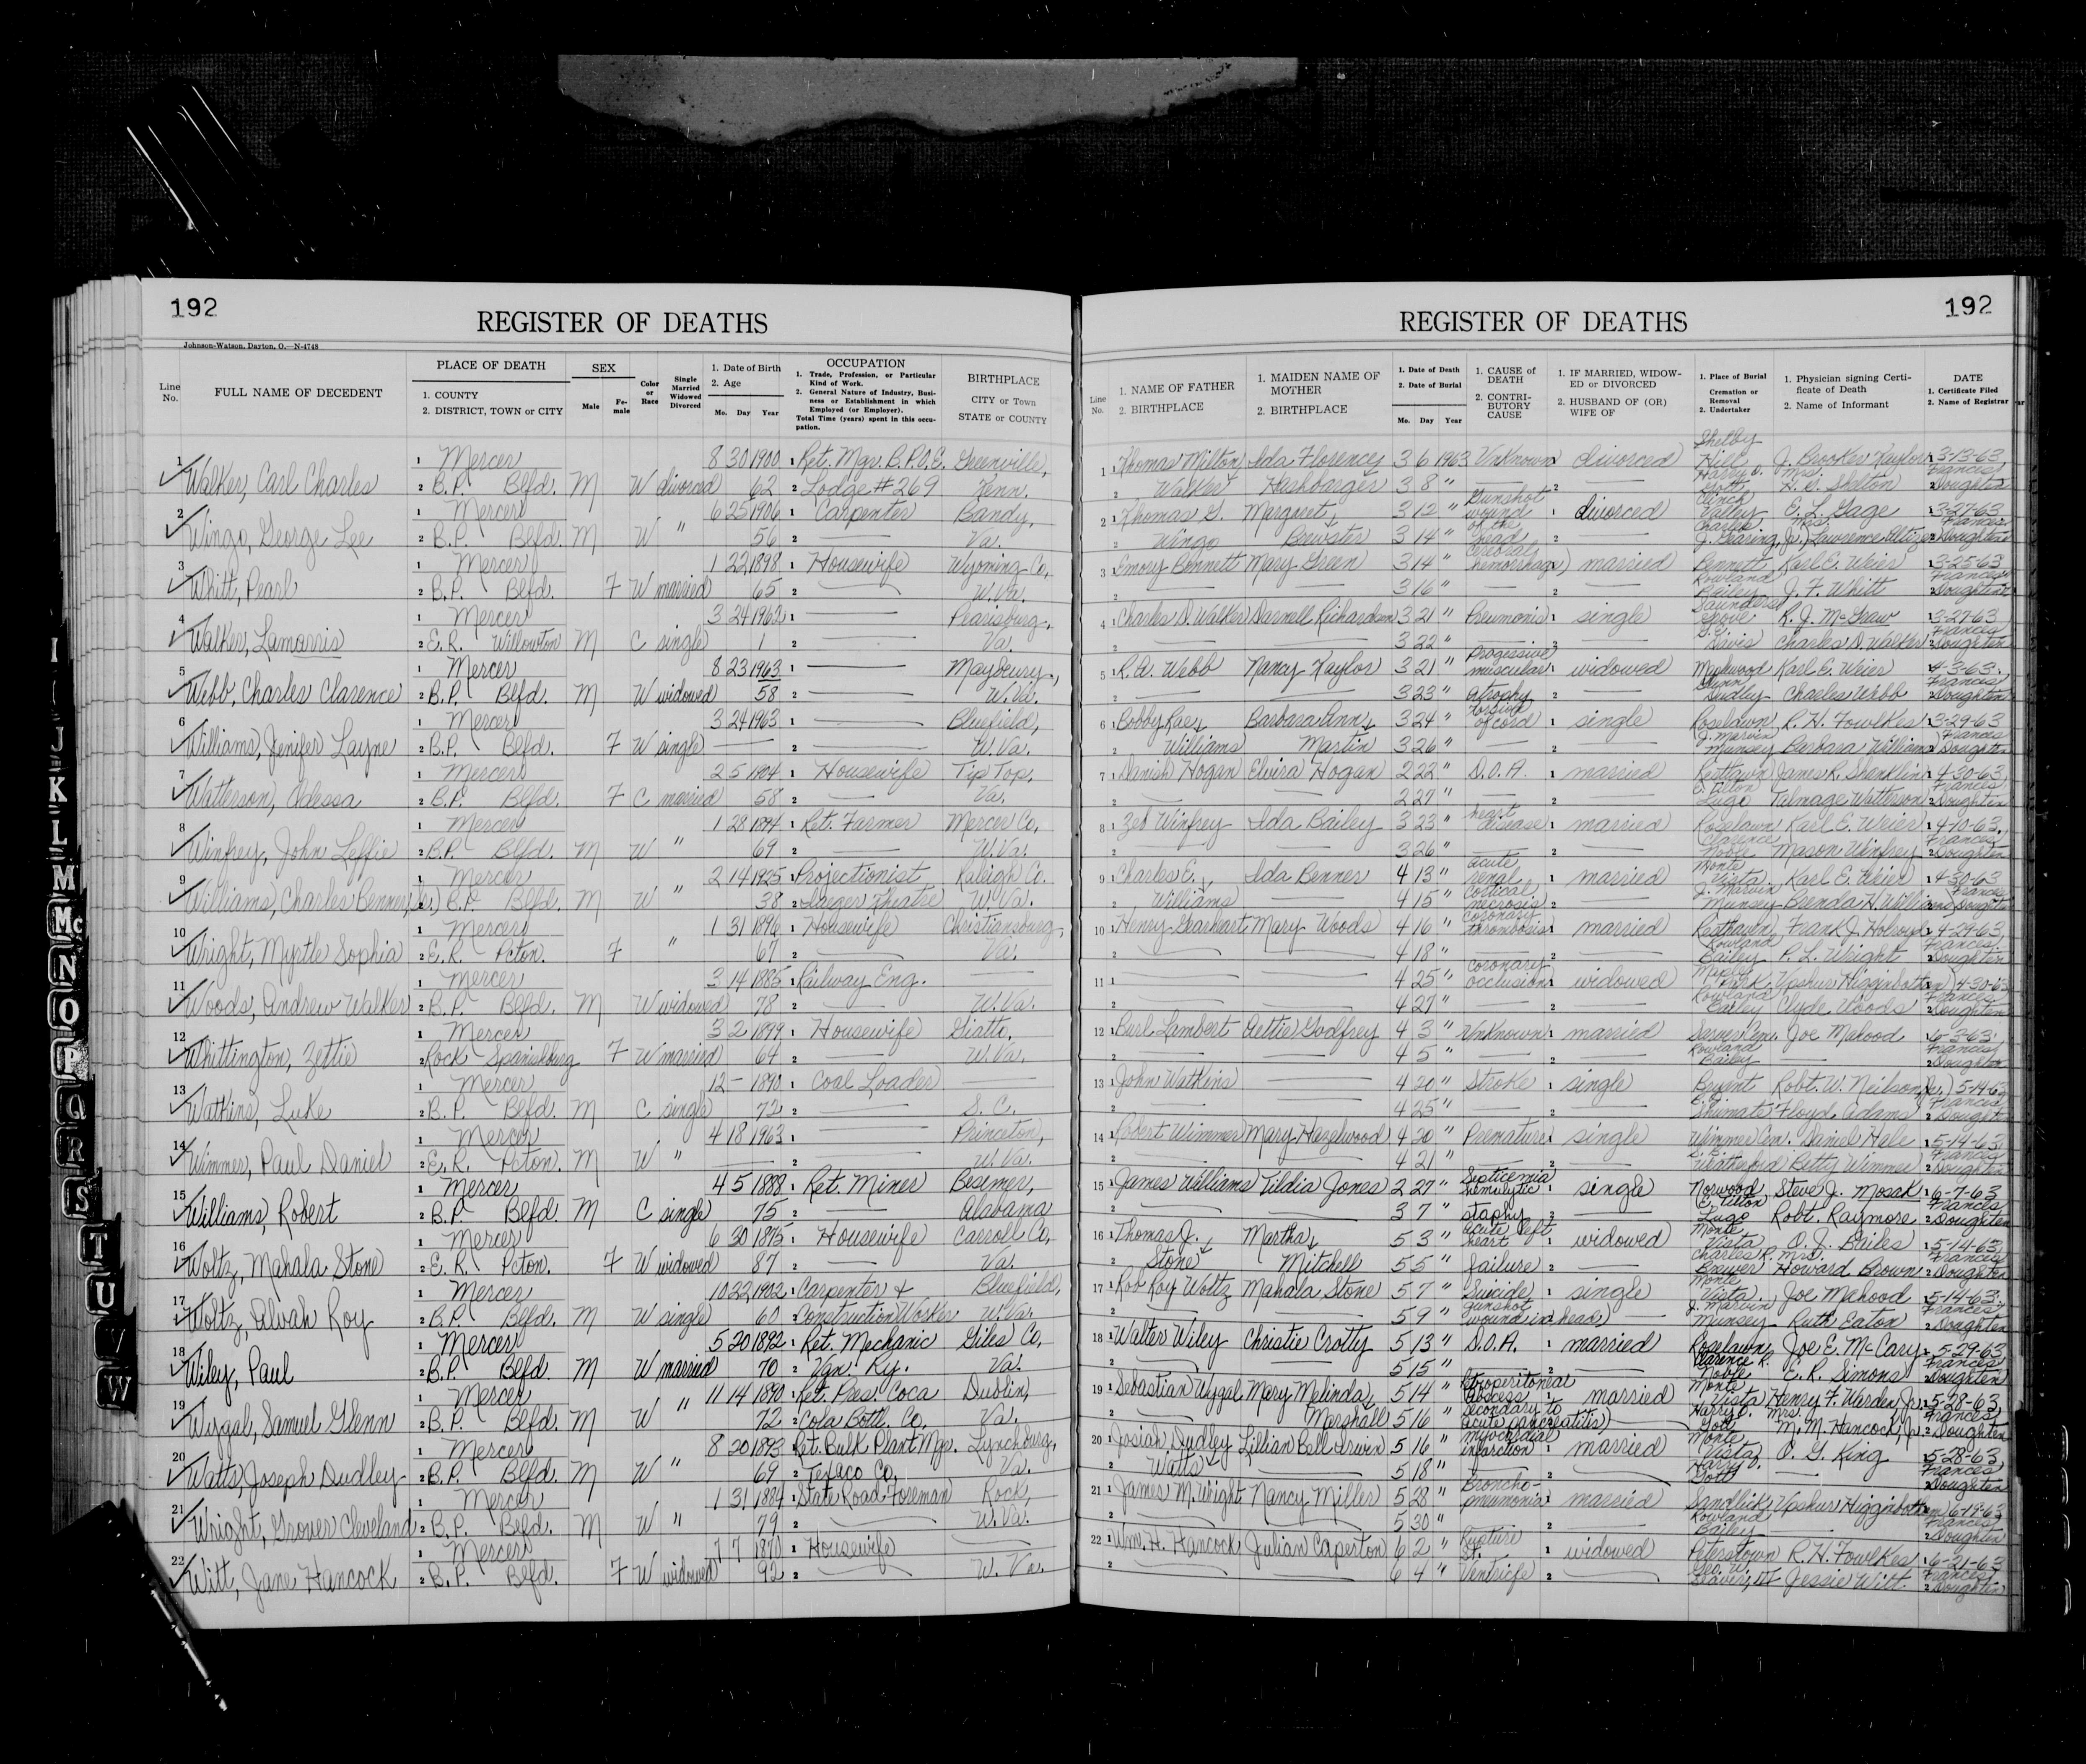 192
REGISTER OF DEATHS
Johnson-Watson, Dayton, O.—N-4748
Line No.
FULL NAME OF DECEDENT
PLACE OF DEATH
1. COUNTY
2. DISTRICT, TOWN or CITY
SEX
Male
Female
Color or Race
Single Married Widowed Divorced
1. Date of Birth
2. Age
Mo. Day Year
OCCUPATION
1. Trade, Profession, or Particular Kind of Work.
2. General Nature of Industry, Business or Establishment in which Employed (or Employer).
Total Time (years) spent in this occupation.
BIRTHPLACE
CITY or Town
STATE or COUNTY
1 Walker, Carl Charles 1 Mercer 8 30 1900 1 Ret. Mgr. B.P.O.E. Greenville,
2 B.P. Blfd. M W divorced 62 2 Lodge #269 Tenn.
2 Wingo, George Lee 1 Mercer 6 25 1906 1 Carpenter Bandy,
2 B.P. Blfd. M W " 56 2 Va.
3 Whitt, Pearl 1 Mercer 1 22 1898 1 Housewife Wyoming Co,
2 B.P. Blfd. F W married 65 2 W. Va.
4 Walker, Lamarris 1 Mercer 3 24 1962 1 Pearisburg,
2 E.R. Willowton M C single 1 2 Va.
5 Webb, Charles Clarence 1 Mercer 8 23 1963 1 Maybeury,
2 B.P. Blfd. M W widowed 58 2 W. Va.
6 Williams, Jenifer Layne 1 Mercer 3 24 1963 1 Bluefield,
2 B.P. Blfd. F W single 2 W. Va.
7 Watterson, Odessa 1 Mercer 2 5 1904 1 Housewife Tip Top,
2 B.P. Blfd. F C married 58 2 Va.
8 Winfrey, John Leffie 1 Mercer 1 28 1894 1 Ret. Farmer Mercer Co,
2 B.P. Blfd. M W " 69 2 W. Va.
9 Williams, Charles Benner, 1 Mercer 2 14 1925 1 Projectionist Raleigh Co.
2 B.P. Blfd. M W " 38 2 Theatre W. Va.
10 Wright, Myrtle Sophia 1 Mercer 1 31 1896 1 Housewife Christiansburg,
2 E.R. Pcton. F " 67 2 Va.
11 Woods, Andrew Walker 1 Mercer 3 14 1885 1 Railway Eng.
2 B.P. Blfd. M W widowed 78 2 W. Va.
12 Whittington, Zettie 1 Mercer 3 2 1899 1 Housewife Giatto,
2 Rock Spanishburg F W married 64 2 W. Va.
13 Watkins, Luke 1 Mercer 12 – 1890 1 Coal Loader
2 B.P. Blfd. M C single 72 2 S. C.
14 Wimmer, Paul Daniel 1 Mercer 4 18 1963 1 Princeton,
2 E.R. Pcton. M W " 2 W. Va.
15 Williams, Robert 1 Mercer 4 5 1888 1 Ret. Miner Besimer,
2 B.P. Blfd. M C single 75 2 Alabama
16 Woltz, Mahala Stone 1 Mercer 6 30 1875 1 Housewife Carroll Co,
2 E.R. Pcton. F W widowed 87 2 Va.
17 Woltz, Alvah Roy 1 Mercer 10 22 1902 1 Carpenter & Bluefield,
2 B.P. Blfd. M W single 60 2 Construction Worker W. Va.
18 Wiley, Paul 1 Mercer 5 20 1892 1 Ret. Mechanic Giles Co,
2 B.P. Blfd. M W married 70 2 Vgn. Ry. Va.
19 Wygal, Samuel Glenn 1 Mercer 11 14 1890 1 Ret. Pres. Coca Dublin,
2 B.P. Blfd. M W " 72 2 Cola Bottl. Co. Va.
20 Watts, Joseph Dudley 1 Mercer 8 20 1893 1 Ret. Bulk Plant Mgr. Lynchburg,
2 B.P. Blfd. M W " 69 2 Texaco Co. Va.
21 Wright, Grover Cleveland 1 Mercer 1 31 1884 1 State Road Foreman Rock,
2 B.P. Blfd. M W " 79 2 W. Va.
22 Witt, Jane Hancock 1 Mercer 7 7 1870 1 Housewife
2 B.P. Blfd. F W widowed 92 2 W. Va.
I
J
K
L
M
Mc
N
O
P
Q
R
S
T
U
V
W
REGISTER OF DEATHS
192
Line No.
1. NAME OF FATHER
2. BIRTHPLACE
1. MAIDEN NAME OF MOTHER
2. BIRTHPLACE
1. Date of Death
2. Date of Burial
Mo. Day Year
1. CAUSE of DEATH
2. CONTRIBUTORY CAUSE
1. IF MARRIED, WIDOWED or DIVORCED
2. HUSBAND OF (OR) WIFE OF
1. Place of Burial Cremation or Removal
2. Undertaker
1. Physician signing Certificate of Death
2. Name of Informant
DATE
1. Certificate Filed
2. Name of Registrar
1 Thomas Milton Walker Ida Florency Hashbarger 3 6 1963 Unknown divorced Shelby Hill J. Brooker Taylor 3-13-63
3 8 " Harry D. Gott Mrs. H. D. Shelton Frances Doughten
2 Thomas G. Wingo Margaret Brewster 3 12 " Gunshot wound of the head divorced Clinch Valley E. L. Gage 3-27-63
3 14 " Charles J. Gearing, Jr. Mrs. Lawrence Altizer Frances Doughten
3 Emory Bennett Mary Green 3 14 " Cerebral hemorrhage married Bennett Karl E. Weier 3-25-63
3 16 " Rowland Bailey J. F. Whitt Frances Doughten
4 Charles D. Walker Darnell Richardson 3 21 " Pneumonia single Saunders Grove R. J. McGraw 3-27-63
3 22 " Davis Charles D. Walker Frances Doughten
5 R. A. Webb Nancy Taylor 3 21 " Progessive muscular atrophy widowed Karl E. Weier 4-3-63
3 23 " Dudley Charles Webb Frances Doughten
6 Bobby Rae Williams Barbara Ann Martin 3 24 " Torsion of cord single Roselawn R. H. Fowlkes 3-29-63
3 26 " J. Marvin Munsey Barbara Williams Frances Doughten
7 Danish Hogan Elvira Hogan 2 22 " D.O.A. married Restlawn James R. Shanklin 4-30-63
2 27 " E. Tilton Lugo Talmage Watterson Frances Doughten
8 Zeb Winfrey Ida Bailey 3 23 " heart disease married Roselawn Karl E. Weier 4-10-63
3 26 " Clarence Noble Mason Winfrey Frances Doughten
9 Charles E. Williams Ida Benner 4 13 " acute renal cortical necrosis married Monte Vista Karl E. Weier 4-30-63
4 15 " J. Marvin Munsey Brenda H. Williams Frances Doughten
10 Henry Gearheart Mary Woods 4 16 " coronary thrombosis married Resthaven Frank J. Holroyd 4-29-63
4 18 " Rowland Bailey P. L. Wright Frances Doughten
11 4 25 " coronary occlusion widowed Maple Park Upshur Higginbotham 4-30-63
4 27 " Rowland Bailey Clyde Woods Frances Doughten
12 Burl Lambert Arttie Godfrey 4 3 " Unknown married Sarver Cem. Joe Mahood 6-3-63
4 5 " Rowland Bailey Frances Doughten
13 John Watkins 4 20 " Stroke single Bryent Robt. W. Neilson, Jr. 5-14-63
4 25 " Shumate Floyd Adams Frances Doughten
14 Robert Wimmer Mary Hazelwood 4 20 " Premature single Wimmer Cem. Daniel Hale 5-14-63
4 21 " Weatherford Betty Wimmer Frances Doughten
15 James Williams Tildia Jones 2 27 " Septicemia hemolytic staphy single Norwood Steve J. Mosak 6-7-63
3 7 " E. Tilton Lugo Robt. Raymore Frances Doughten
16 Thomas J. Stone Martha Mitchell 5 3 " acute left heart failure widowed Monte Vista O. J. Bailes 5-14-63
5 5 " Charles R. Brewer Mrs. Howard Brown Frances Doughten
17 Rob Roy Woltz Mahala Stone 5 7 " Suicide single Monte Vista Joe Mahood 5-14-63
5 9 " gunshot wound in head J. Marvin Munsey Ruth Eaton Frances Doughten
18 Walter Wiley Christie Crotty 5 13 " D.O.A. married Roselawn Joe E. McCary 5-29-63
5 15 " Clarence R. Noble E. R. Simons Frances Doughten
19 Sebastian Wygal Mary Melinda Marshall 5 14 " abscess secondary to acute pancreatitis married Monte Vista Henry F. Warden Jr. 5-28-63
5 16 " Harry D. Gott Mrs. M. M. Hancock, Jr. Frances Doughten
20 Josiah Dudley Watts Lillian Bell Irwin 5 16 " myocardial infarction married Monte Vista O. G. King 5-28-63
5 18 " Harry D. Gott Frances Doughten
21 James M. Wright Nancy Miller 5 28 " Broncho-pneumonia married Sandlick Upshur Higginbotham 6-19-63
5 30 " Rowland Bailey Frances Doughten
22 Wm. H. Hancock Julian Caperton 6 2 " Rupture lt. Ventricle widowed Peterstown R. H. Fowlkes 6-21-63
6 4 " Geo. W. Seaver, II Jessie Witt Frances Doughten